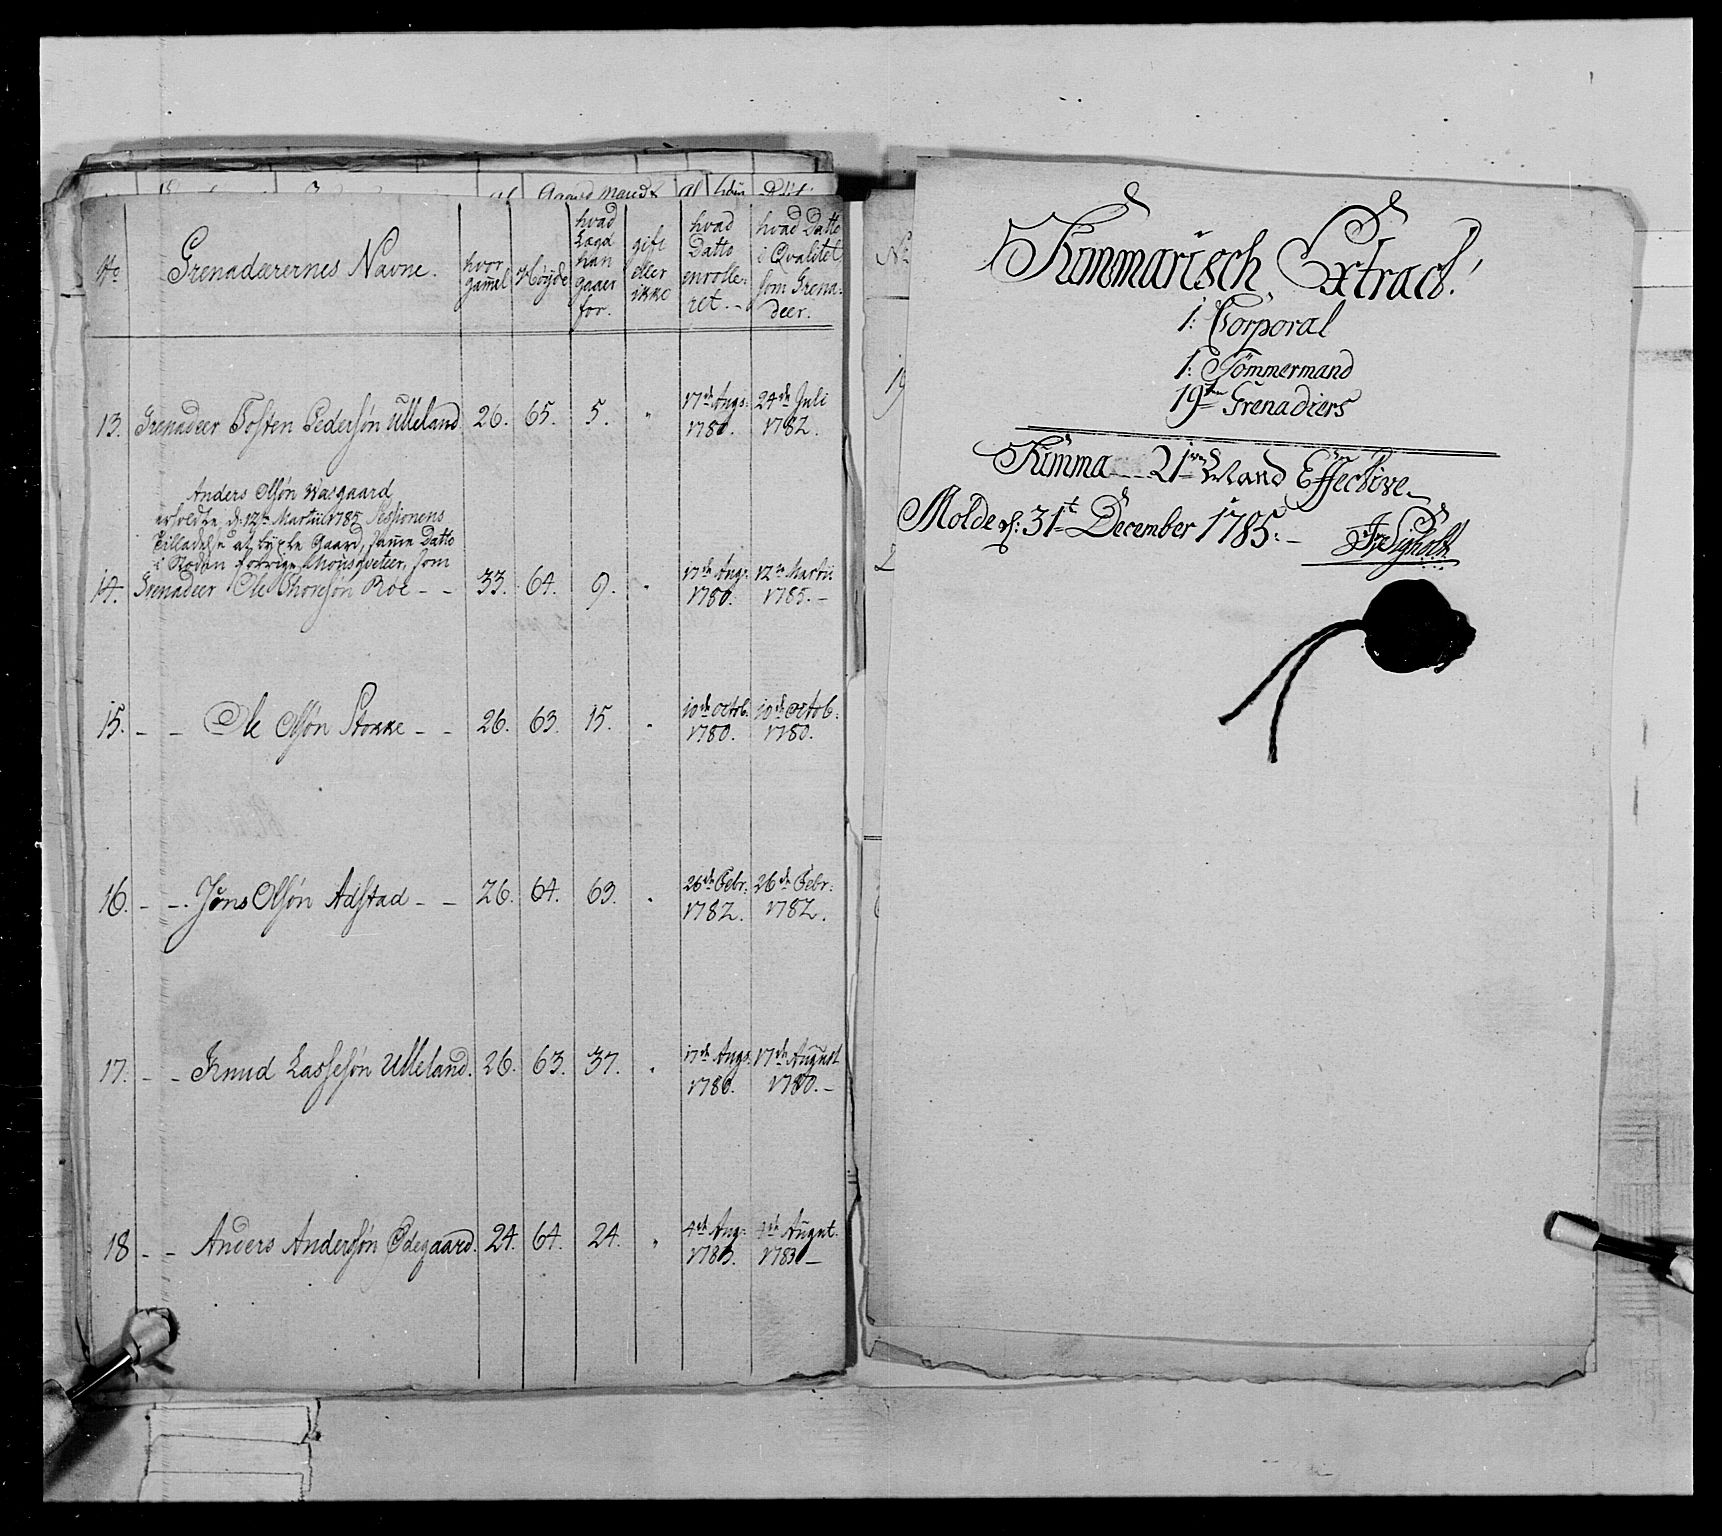 No
Grenadeerernes Navne.
hvor gamel
Høyde
hvad Lægd han gaaer for.
gift eller ikke
hvad Datto enrolle: ret. -
hvad Datto i Qvalitet som Grena: deer.
13. Grenadeer Tosten Pedersøn Ulleland 26. 65. 5. " 17de Augs: 1780. 24de Juli 1782.
Anders Olsøn Wasgaard
erholdte d: 12te Martii 1785 Sessionens
Tilladelse at bÿxle Gaard, same Datto
i Steden forrige Mousqveteer, som
14. Grenadeer Ole Thoresøn Roe - - 33. 64. 9. " 17de Augs: 1780. 12te Martii 1785. -
15. - - Ole Olsøn Stokke - - 26. 63. 15. " 10de Octob. 1780. 10de Octob: 1780.
16. - - Jøns Olsøn Adstad - - 26. 64. 63. " 26de Febr: 1782. 26de Febr: 1782.
17. - - Knud Lassesøn Ulleland. 26. 63. 37. " 17de Augs: 1780. 17de August 1780. -
18 - - Anders Andersøn Ødegaard. 24. 64. 24. " 4de Aug: 1783. 4de August. 1783 -
Summarisch Extract.
1: Corporal
1: Tömmermand
19ten Grenadiers
Summa - - 21 Mand Effective
Molde d: 31t December 1785. -